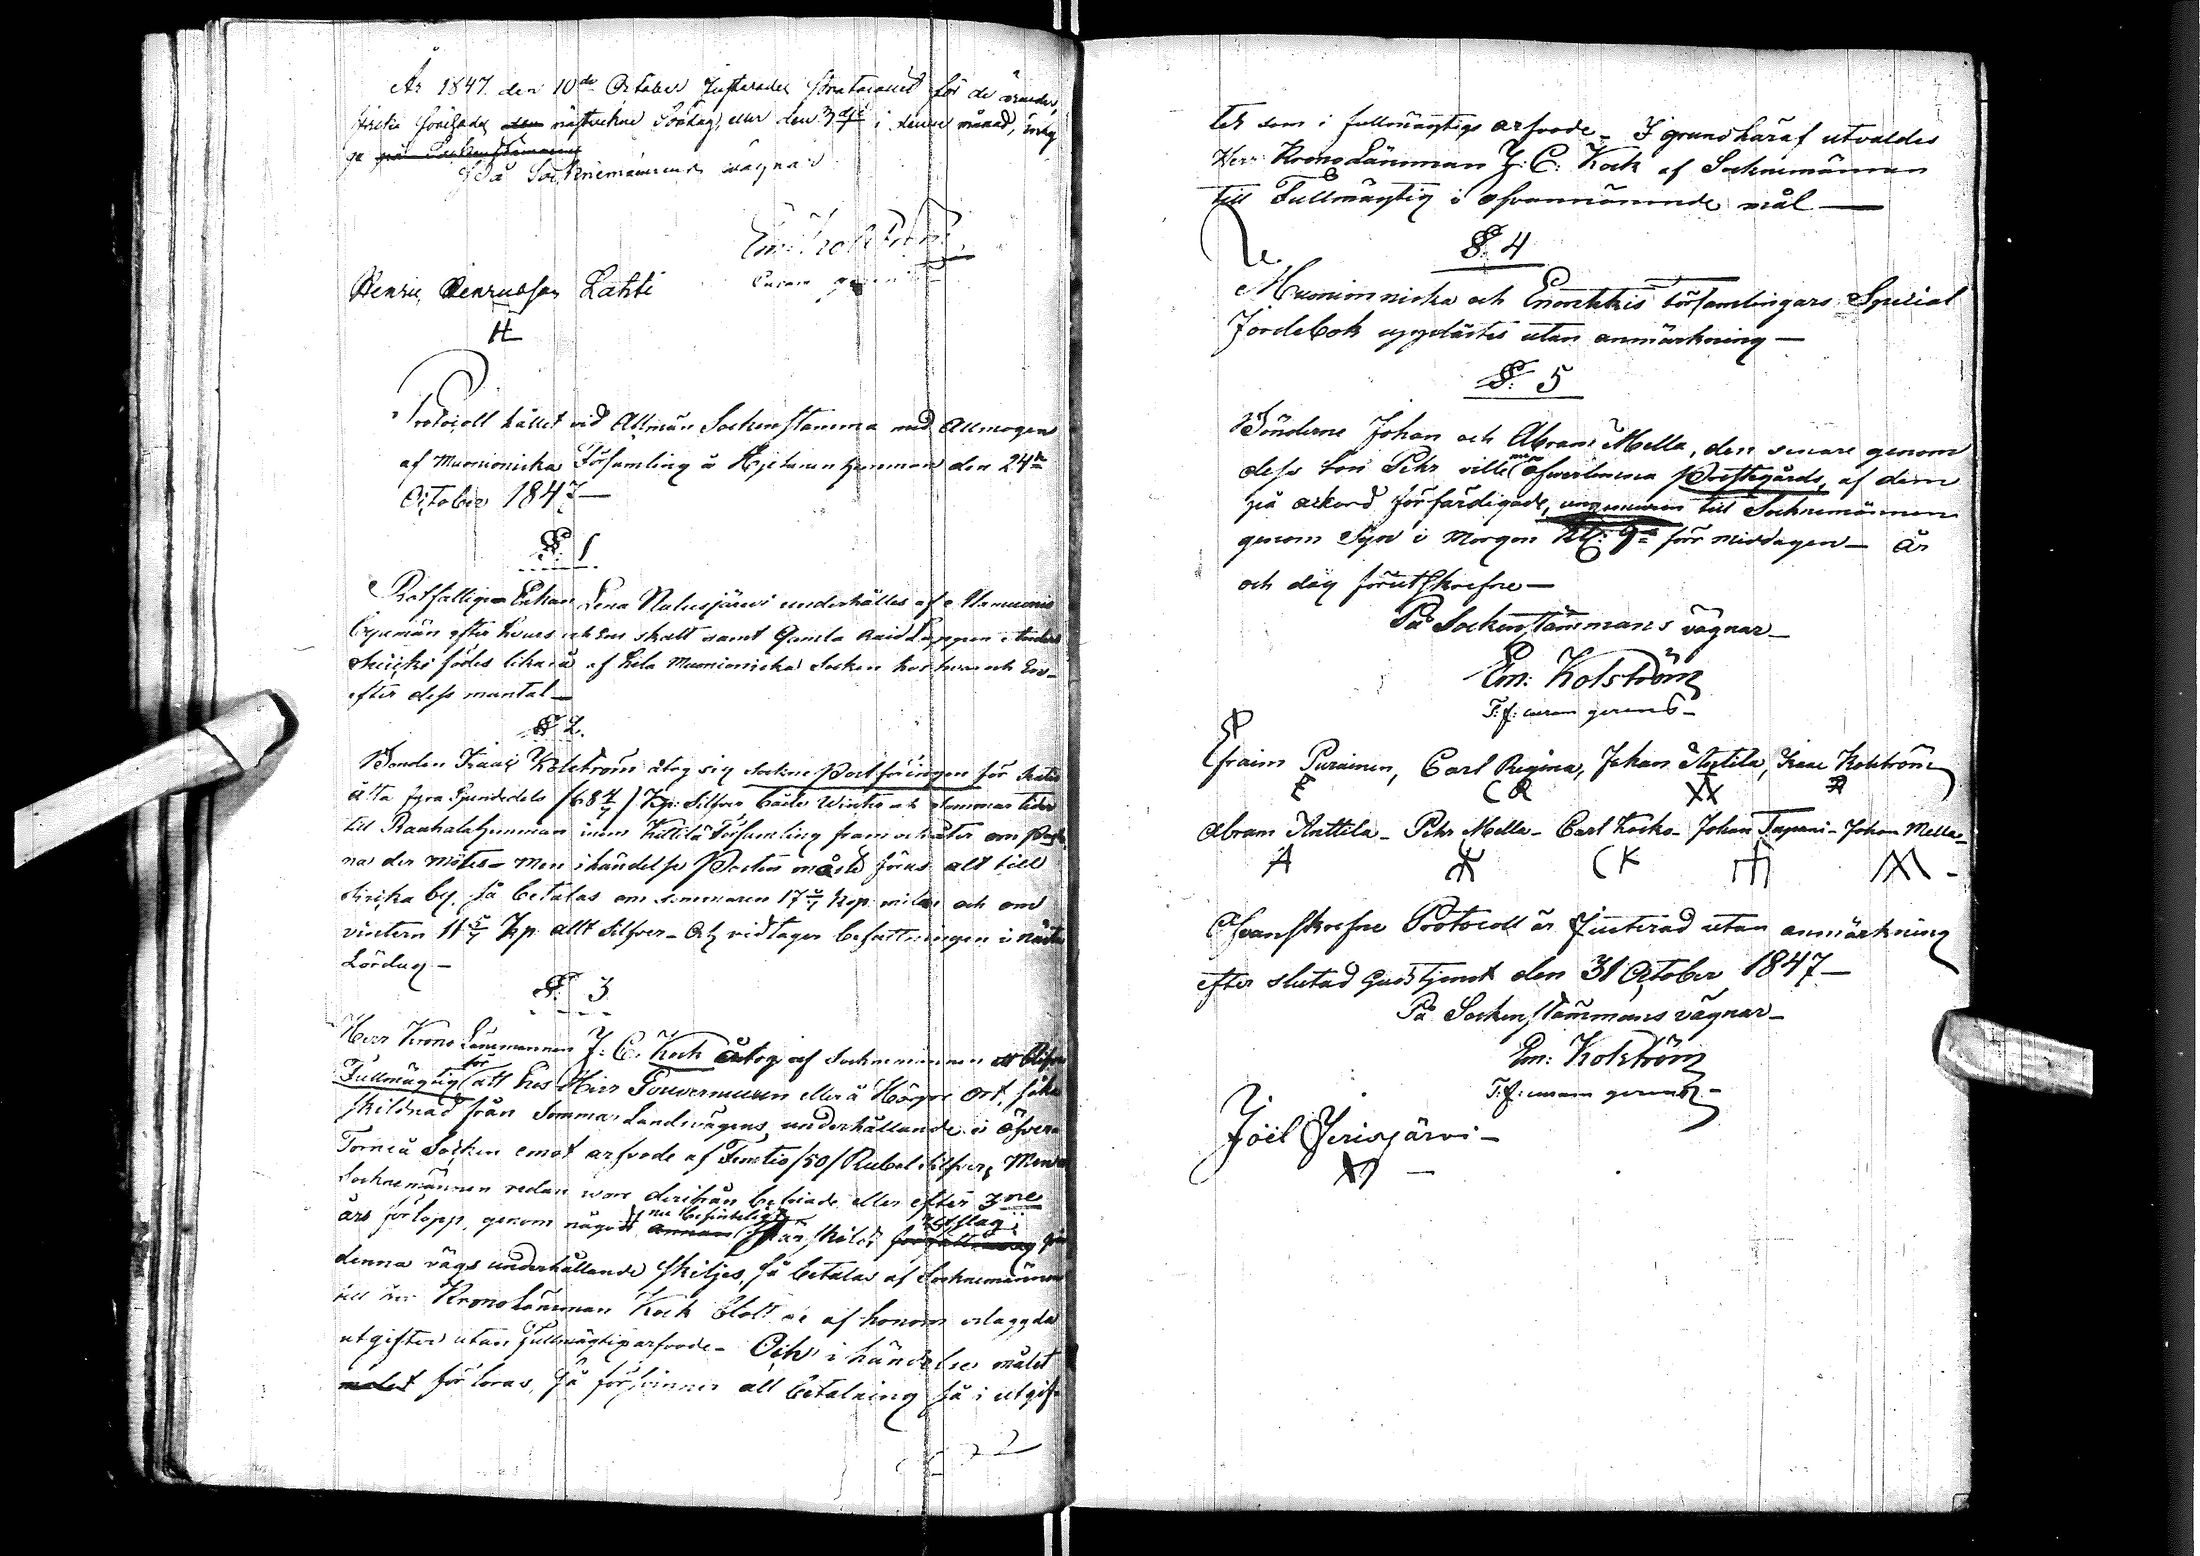 År 1847 den 10de October Justerades Protocollet för de ärender,
hvilka föregades näst vekne Söndag, eller den 3dje i denne månad,
På Socknemännernes vägnar
Em: Kolström
Curam gerens
Henric Henricsson Lahti
H
Protocoll hållet vid Allmän Sockenstamma med Allmogen
af Muonionicka Församling å Hjetanen hemman den 24de
October 1847 —
§. 1
Rotfattige Enkan Lena Nalusjärvi underhålles af
byemän efter hvars och ens skatt samt Gamla Lappen
födes likaså af hela Muonionicka Socken hvar och En
efter dess mantal —
§ 2.
Bonden Isaac Kolström åtog sig sockne Postföringen för Sextio
åtta fyra Sjundedels /68 4/7/ Kop: Silfver både Winter och Sommar tider
till Rauhala hemman inom Kittilä Församling fram och åter om Poster
na der mötes — Men i händelse Posten måste föras allt till
by, så betalas om sommaren 17 Kop milen och om
vintern 11 5/7 Kp allt Silfver — Och vidtager befattningen i nästa
Lördag —
§. 3
Herr Krono Länsmannen J: C: Kock åtog af Socknemännen att blifva
Fullmägtig för att hos Herr Gouverneuren eller å Högre Ort, söka
skildnad från Sommar Landsvägens underhållande i Öfver
Torneå Socken emot arfvode af Femtio /50/ Rubel Silfver, Men om
Socknemännen redan vore derifrån befriade eller efter 3ne
års förlopp, genom något nu befinteligt förslag från
denna vägs underhållande skiljes, så betalas af Socknemännen
till Herr Kronolänsman Kock blott de af honom erlaggda
utgifter utan Fullmägtigarfvode — Och i händelse målet
målet förloras, så försvinner all betalning så i utgif-
ter som i fullmägtigs arfvode — I grund häraf utvaldes
Herr Krono Länsman J: C: Kock af Socknemännen
till Fullmägtig i ofvannämnde mål —
§. 4
Muonionicka och Enontekis församlingars Special
Jordebok upplästes utan anmärkning —
§. 5
Bönderne Johan och Abram Mella, den senare genom
dess son Pehr ville öfverlemna Prestgårds, af dem
på ackord förfärdigade, ungsmuren till Socknemännen
genom Syn i morgon Kl: 9 förr middagen — År
och dag förutskrefne —
På Sockenstämmans vägnar —
Em: Kolström
T: f: curam gerens —
Efraim Puranen, Carl Regina, Johan Anttila, Isaac Kolström
E CR
Abram Anttila — Pehr Mella — Carl Kocko — Johan Tapani — Johan Mella —
A CK
Ofvanskrefne Protocoll är Justerad utan anmärkning
efter slutad Gudstjenst den 31 October 1847 —
På Sockenstämmans vägnar —
Em: Kolström
T: f: curam gerens —
Joël Jerisjärvi —